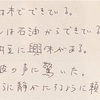 木でできている。
は石油からできている
に興味がある。
の声に驚いた。
に静かにするように頼